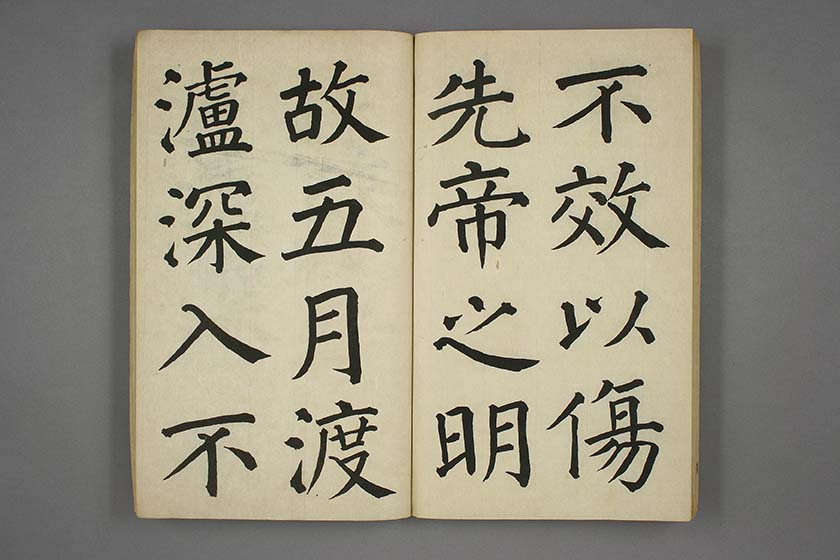 不效以傷
先帝之明
故五月渡
瀘深入不